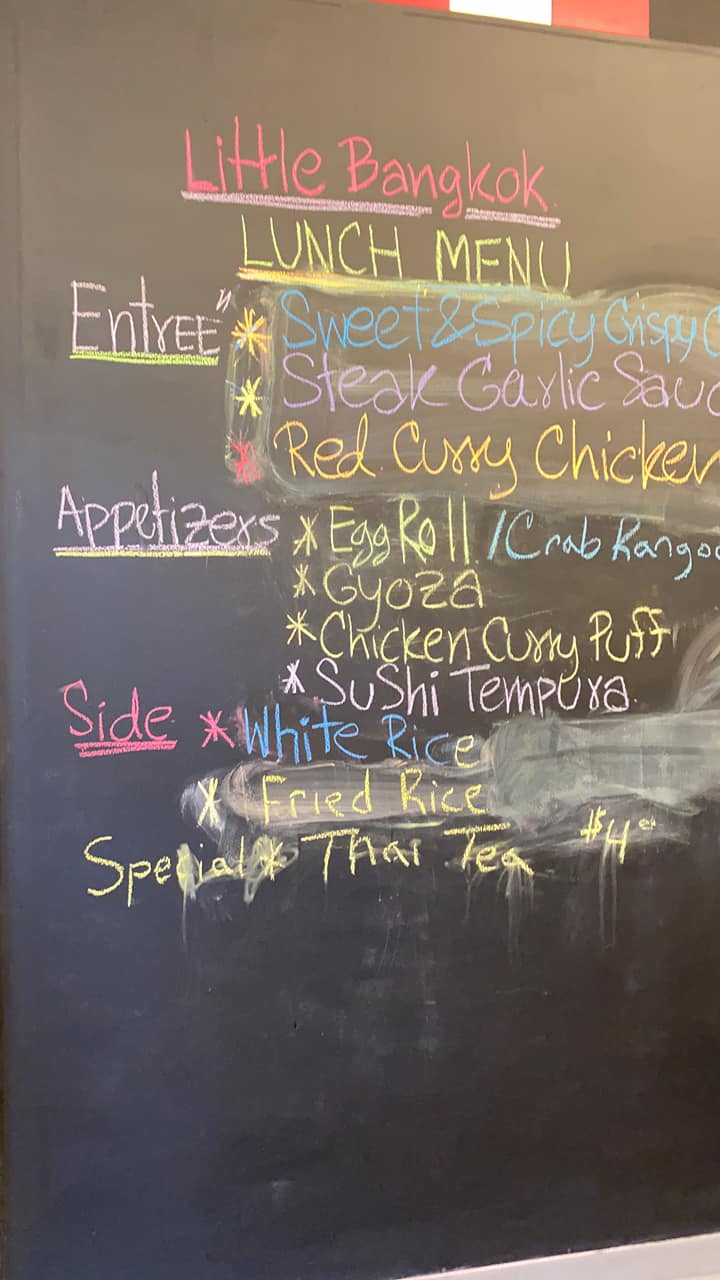 Little Bangkok
LUNCH MENU
EntrEE " * Sweet & Spicy Crispy
* Steak Garlic
* Red Curry Chicken
Appetizers * Egg Roll / Crab
* Gyoza
* Chicken Curry Puff
* SuShi Tempura
Side * White Rice
* Fried Rice
Special * Thai Tea $4